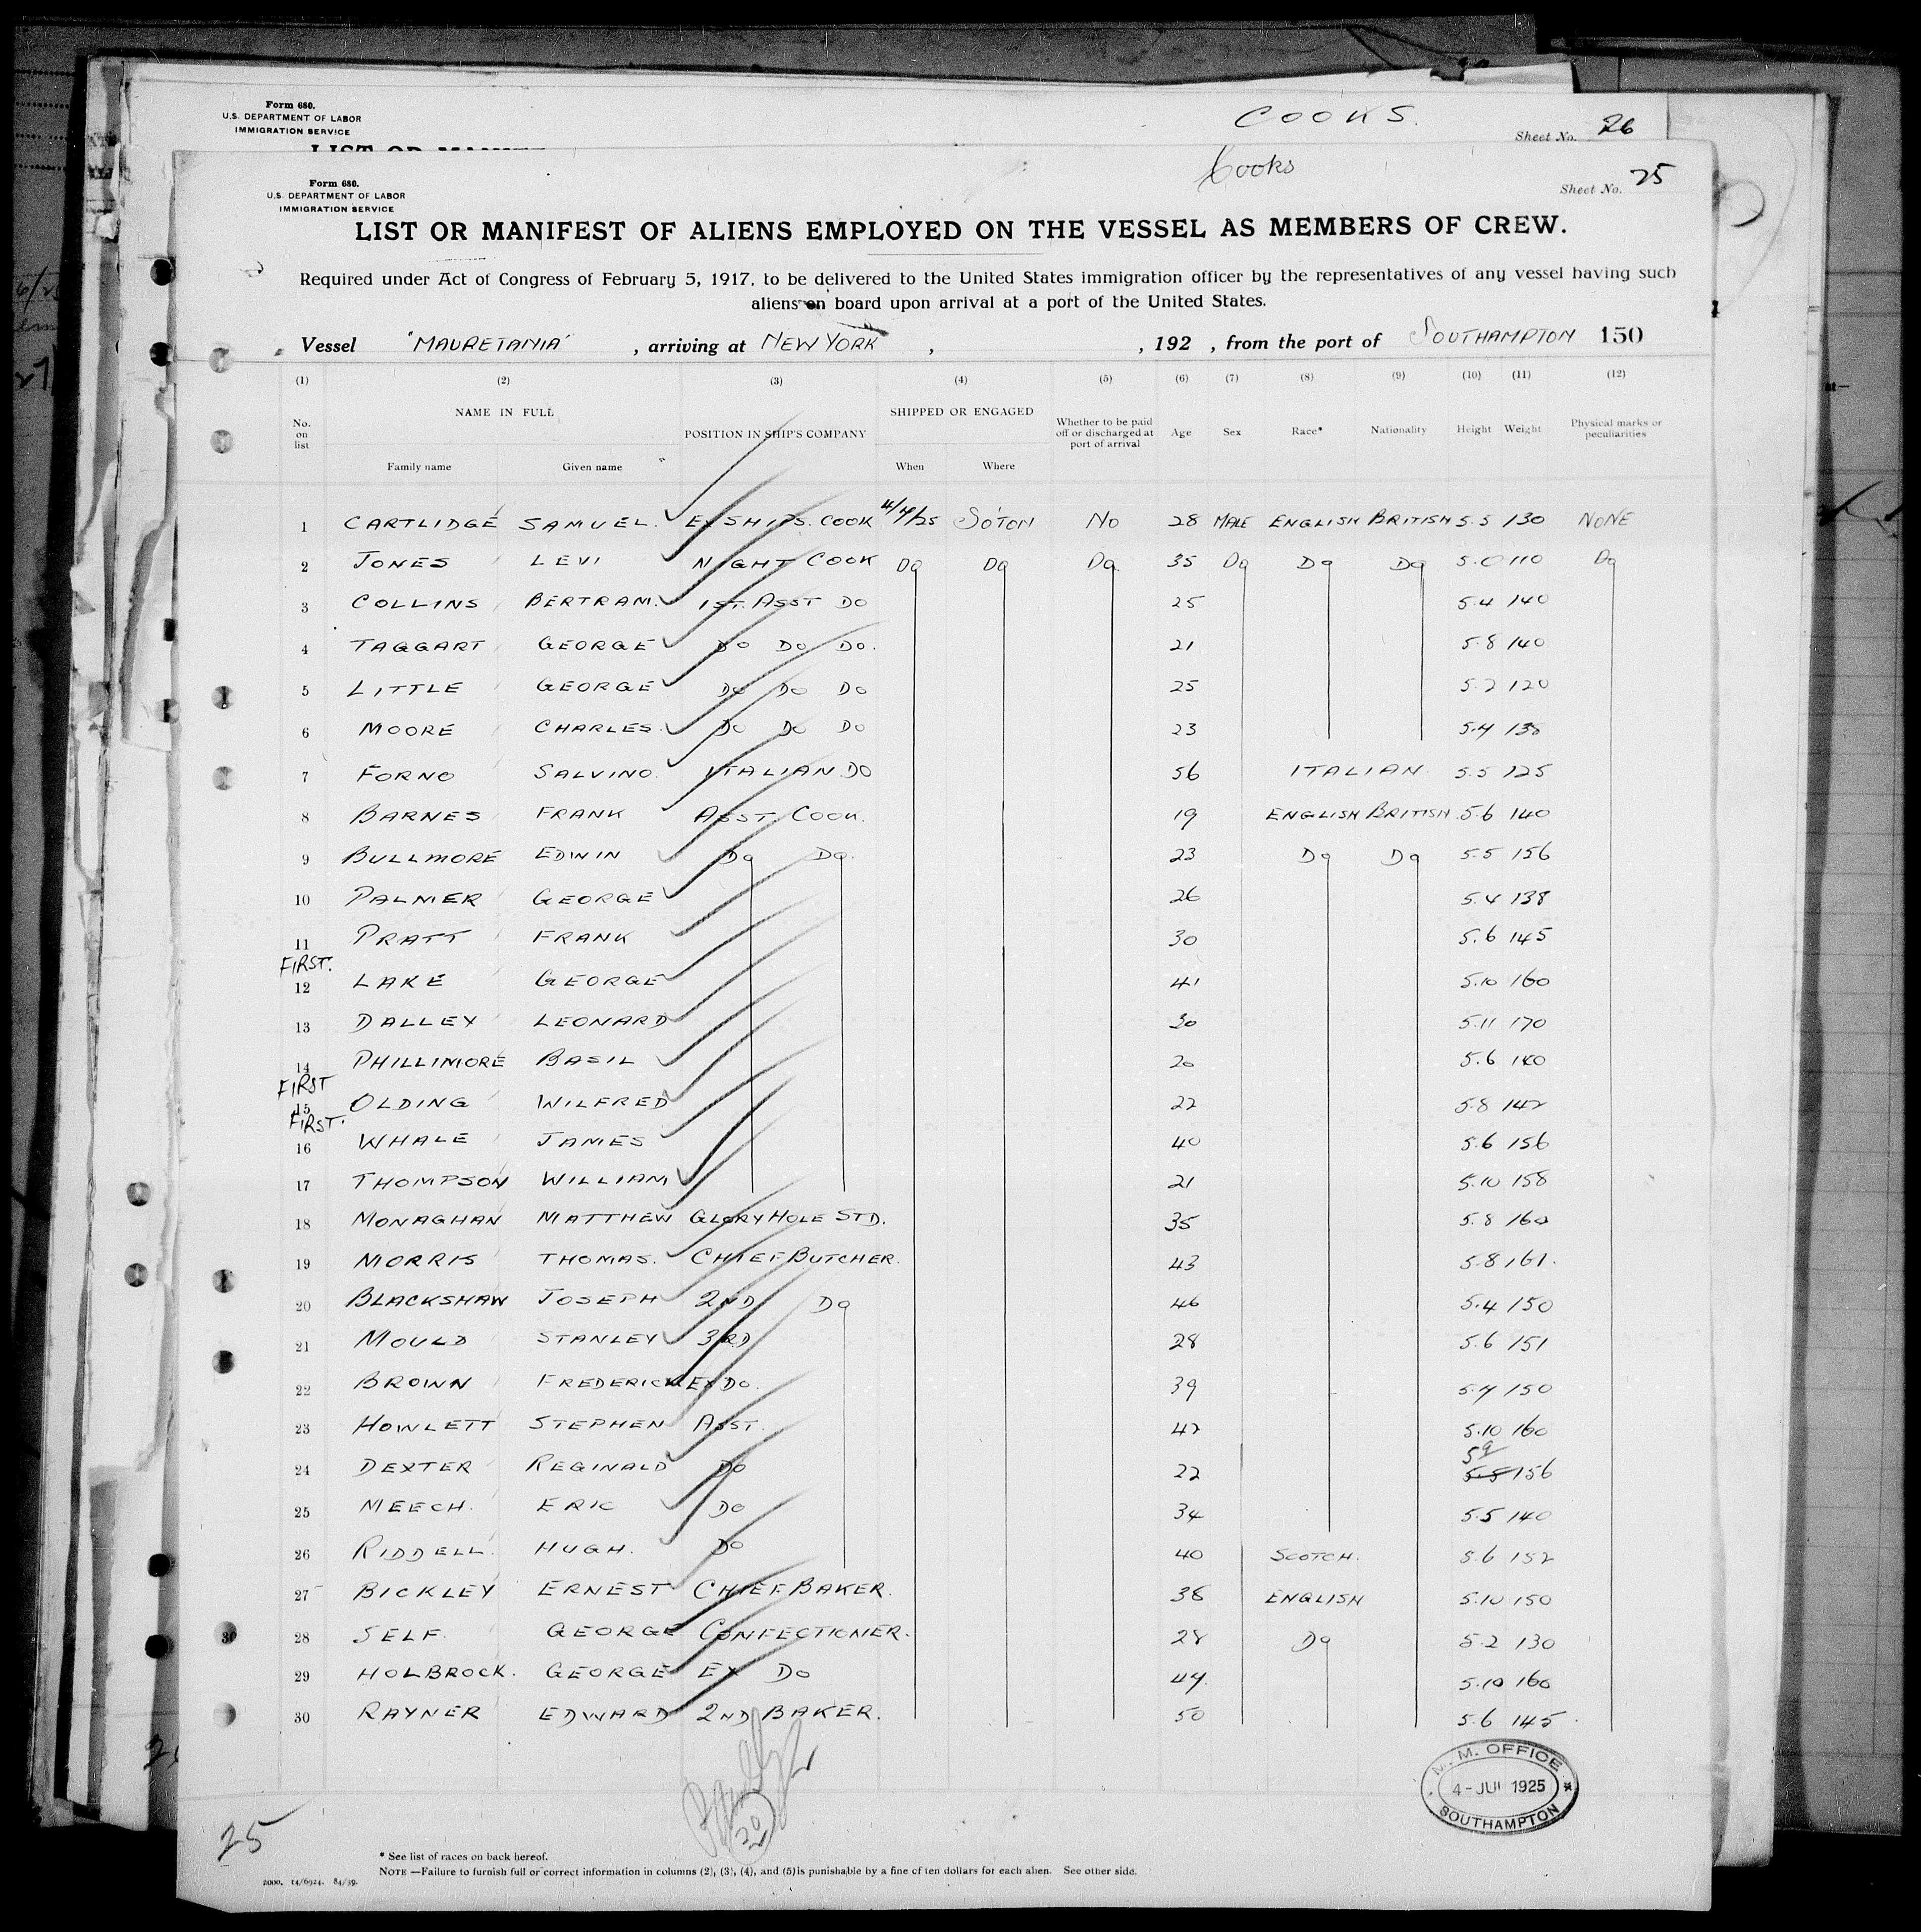 Form 680.
U.S. DEPARTMENT OF LABOR
IMMIGRATION SERVICE
COOKS.
Sheet No. 26
Cooks
Form 680.
U.S. DEPARTMENT OF LABOR
IMMIGRATION SERVICE
Sheet No. 25
LIST OR MANIFEST OF ALIENS EMPLOYED ON THE VESSEL AS MEMBERS OF CREW.
Required under Act of Congress of February 5, 1917, to be delivered to the United States immigration officer by the representatives of any vessel having such
aliens on board upon arrival at a port of the United States.
Vessel "MAURETANIA", arriving at NEW YORK, , 192 , from the port of SOUTHAMPTON 150
(1) (2) (3) (4) (5) (6) (7) (8) (9) (10) (11) (12)
No. on list NAME IN FULL Family name Given name POSITION IN SHIP'S COMPANY SHIPPED OR ENGAGED When Where Whether to be paid off or discharged at port of arrival Age Sex Race* Nationality Height Weight Physical marks or peculiarities
1 CARTLIDGE SAMUEL. EX SHIPS. COOK 4/7/25 S'OTON No 28 MALE ENGLISH BRITISH 5.5 130 NONE
2 JONES LEVI NIGHT COOK Do Do Do 35 Do Do Do 5.0 110 Do
3 COLLINS BERTRAM. 1ST. ASST DO 25 5.4 140
4 TAGGART GEORGE DO DO DO. 21 5.8 140
5 LITTLE GEORGE DO DO DO 25 5.2 120
6 MOORE CHARLES. DO DO DO 23 5.4 138
7 FORNO SALVINO. ITALIAN DO 56 ITALIAN. 5.5 125
8 BARNES FRANK ASST. COOK. 19 ENGLISH BRITISH. 5.6 140
9 BULLMORE EDWIN Do Do. 23 Do Do 5.5 156
10 PALMER GEORGE 26 5.4 138
11 PRATT FRANK 30 5.6 145
FIRST.
12 LAKE GEORGE 41 5.10 160
13 DALLEY LEONARD 30 5.11 170
14 PHILLIMORE BASIL 20 5.6 140
FIRST
15 OLDING WILFRED 22 5.8 142
FIRST.
16 WHALE JAMES 40 5.6 156
17 THOMPSON WILLIAM 21 5.10 158
18 MONAGHAN MATTHEW GLORY HOLE STD. 35 5.8 160
19 MORRIS THOMAS. CHIEF BUTCHER. 43 5.8 161.
20 BLACKSHAW JOSEPH 2ND Do 46 5.4 150
21 MOULD STANLEY 3RD 28 5.6 151
22 BROWN FREDERICK EX DO. 39 5.7 150
23 HOWLETT STEPHEN ASST. 42 5.10 160
24 DEXTER REGINALD DO 22 5.8 59 156
25 MEECH. ERIC DO 34 5.5 140
26 RIDDELL. HUGH. DO 40 SCOTCH. 5.6 152
27 BICKLEY ERNEST CHIEF BAKER. 38 ENGLISH 5.10 150
28 SELF. GEORGE CONFECTIONER. 28 Do 5.2 130
29 HOLBROCK. GEORGE EX DO 47. 5.10 160
30 RAYNER EDWARD 2ND BAKER. 50 5.6 145.
30
M.M. OFFICE
4-JUL 1925
SOUTHAMPTON
25
* See list of races on back hereof.
NOTE —Failure to furnish full or correct information in columns (2), (3), (4), and (5) is punishable by a fine of ten dollars for each alien. See other side.
2000. 14/6924. 84/39.